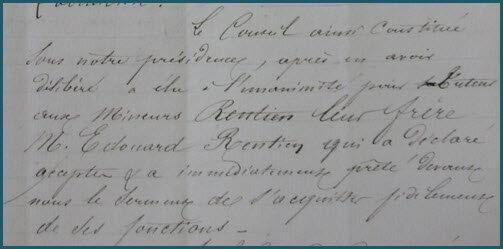 Le Conseil ainsi constitué
sous notre présidence, après en avoir
délibéré a élu à l'unanimité pour tuteur
aux mineurs Rentien leur frère
M. Edouard Rentien qui a déclaré
accepter & a immédiatement prêté devant
nous le serment de s'acquitter fidèlement
de ses fonctions -